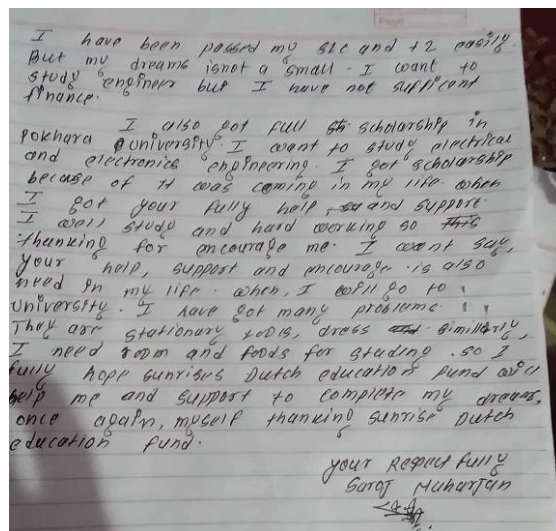 Page
I have been passed my SLC and +2 easily.
But my dreams isnot a small. I want to
study engineer but I have not sufficent
finance.
I also got full scholarship in
pokhara university. I want to study electrical
and electronics engineering. I got scholarship
becuse of it was coming in my life. when
I got your fully help, and support.
I well study and hard working so
thanking for encourage me. I want say,
your help, support and encourage is also
need in my life. when, I will go to
university. I have got many problems.
They are stationary tools, dress similarly,
I need room and foods for studing. so I
fully hope sunrises Dutch education fund will
help me and support to complete my dreams,
once again, myself thanking sunrise Dutch
education fund.
your Respectfully
Saroj Maharjan